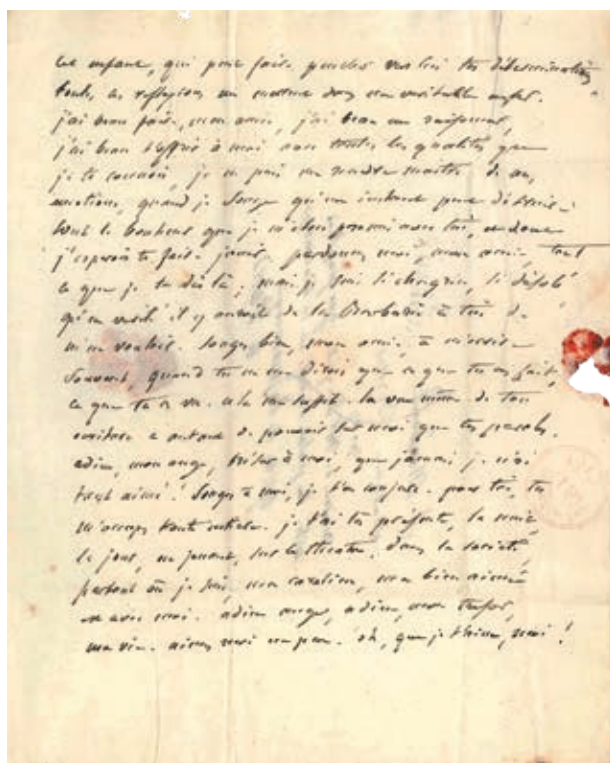 cet enfant, qui peut faire pencher vers lui tes déterminations
toutes ces reflexions me mettent dans un veritable enfer.
j'ai beau faire, mon amie, j'ai beau me raisonner,
j'ai beau t'offrir à moi avec toutes les qualités que
je te connois, je ne puis me rendre maitre de mes
emotions, quand je songe qu'un instant peut détruire
tout le bonheur que je m'etois promis avec toi, et dont
j'esperois te faire jouir. pardonnez moi, mon amie, tout
ce que je te dis là ; mais je suis si chagrin, si désolé
qu'en verité il y auroit de la Barbarie à toi de
m'en vouloir. songe bien, mon amie, à m'ecrire
souvent, quand tu ne me dirois que ce que tu as fait,
ce que tu as vu. cela me suffit. la vue même de ton
ecriture a autant de pouvoir sur moi que tes paroles.
adieu, mon ange, à moi, que jamais je n'ai
tant aimé ! songe à moi, je t'en conjure. pour toi, tu
m'occupes toute entiere. je t'ai toi présente, la nuit,
le jour, en jouant, sur le theatre, dans la societé,
partout où je suis, ma caroline, ma bien aimée
est avec moi. adieu ange, adieu, mon tresor,
ma vie. aimez moi un peu. oh, que je t'aime, moi !